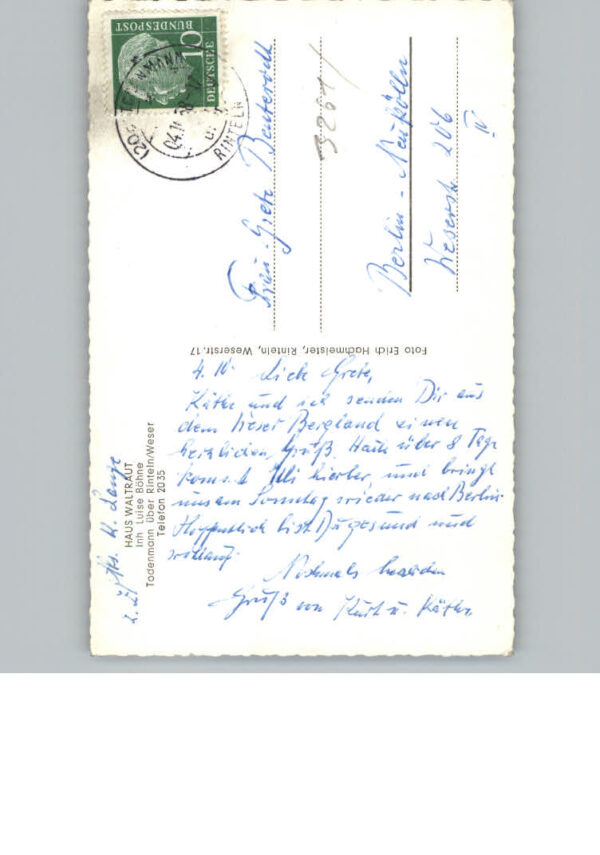 DEUTSCHE
BUNDESPOST
10
(20
TODENMANN
04.11.58
ü.
RINTELN
Frau Grete Beuteroth
3201
Berlin-Neukölln
Weserstr 206
IV
Foto Erich Hachmeister, Rinteln, Weserstr. 17
HAUS WALTRAUT
Inh. Luise Böhne
Todenmann über Rinteln/Weser
Telefon 2035
z. Zt. Abs. K. Lange
Liebe Grete,
Käthe und ich senden Dir aus
dem Weser Bergland einen
herzlichen Gruß. Heute über 8 Tage
kommt Ulli hierher, und bringt
uns am Sonntag wieder nach Berlin
Hoffentlich bist Du gesund und
wohlauf.
Nochmals herzlichen
Gruß von Kurt u. Käthe.